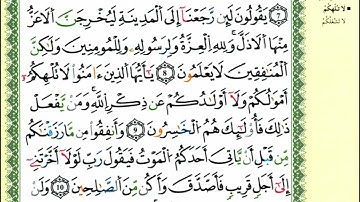 ٧ يَقُولُونَ لَئِن رَّجَعْنَآ إِلَى ٱلْمَدِينَةِ لَيُخْرِجَنَّ ٱلَاعَزُّ
مِنْهَا ٱلَاذَلَّ وَلِلهِ ٱلْعِزَّةُ وَلِرَسُولِهِۦ وَلِلْمُومِنِينَ وَلَٰكِنَّ
ٱلْمُنَٰفِقِينَ لَا يَعْلَمُونَ ٨ يَٰٓأَيُّهَا ٱلذِينَ ءَامَنُوا۟ لَا تُلْهِكُمُۥٓ
أَمْوَٰلُكُمْ وَلَآ أَوْلَٰدُكُمْ عَن ذِكْرِ ٱللَّهِ وَمَن يَّفْعَلْ
ذَٰلِكَ فَأُو۟لَٰٓئِكَ هُمُ ٱلْخَٰسِرُونَ ٩ وَأَنفِقُوا۟ مِن مَّا رَزَقْنَٰكُم
مِّن قَبْلِ أَنْ يَّاتِيَ أَحَدَكُمُ ٱلْمَوْتُ فَيَقُولَ رَبِّ لَوْلَآ أَخَّرْتَنِىٓ
إِلَىٰٓ أَجَلٍ قَرِيبٍ فَأَصَّدَّقَ وَأَكُن مِّنَ ٱلصَّٰلِحِينَ ١٠ وَلَنْ
لا تلهكم
لا تشغلكم